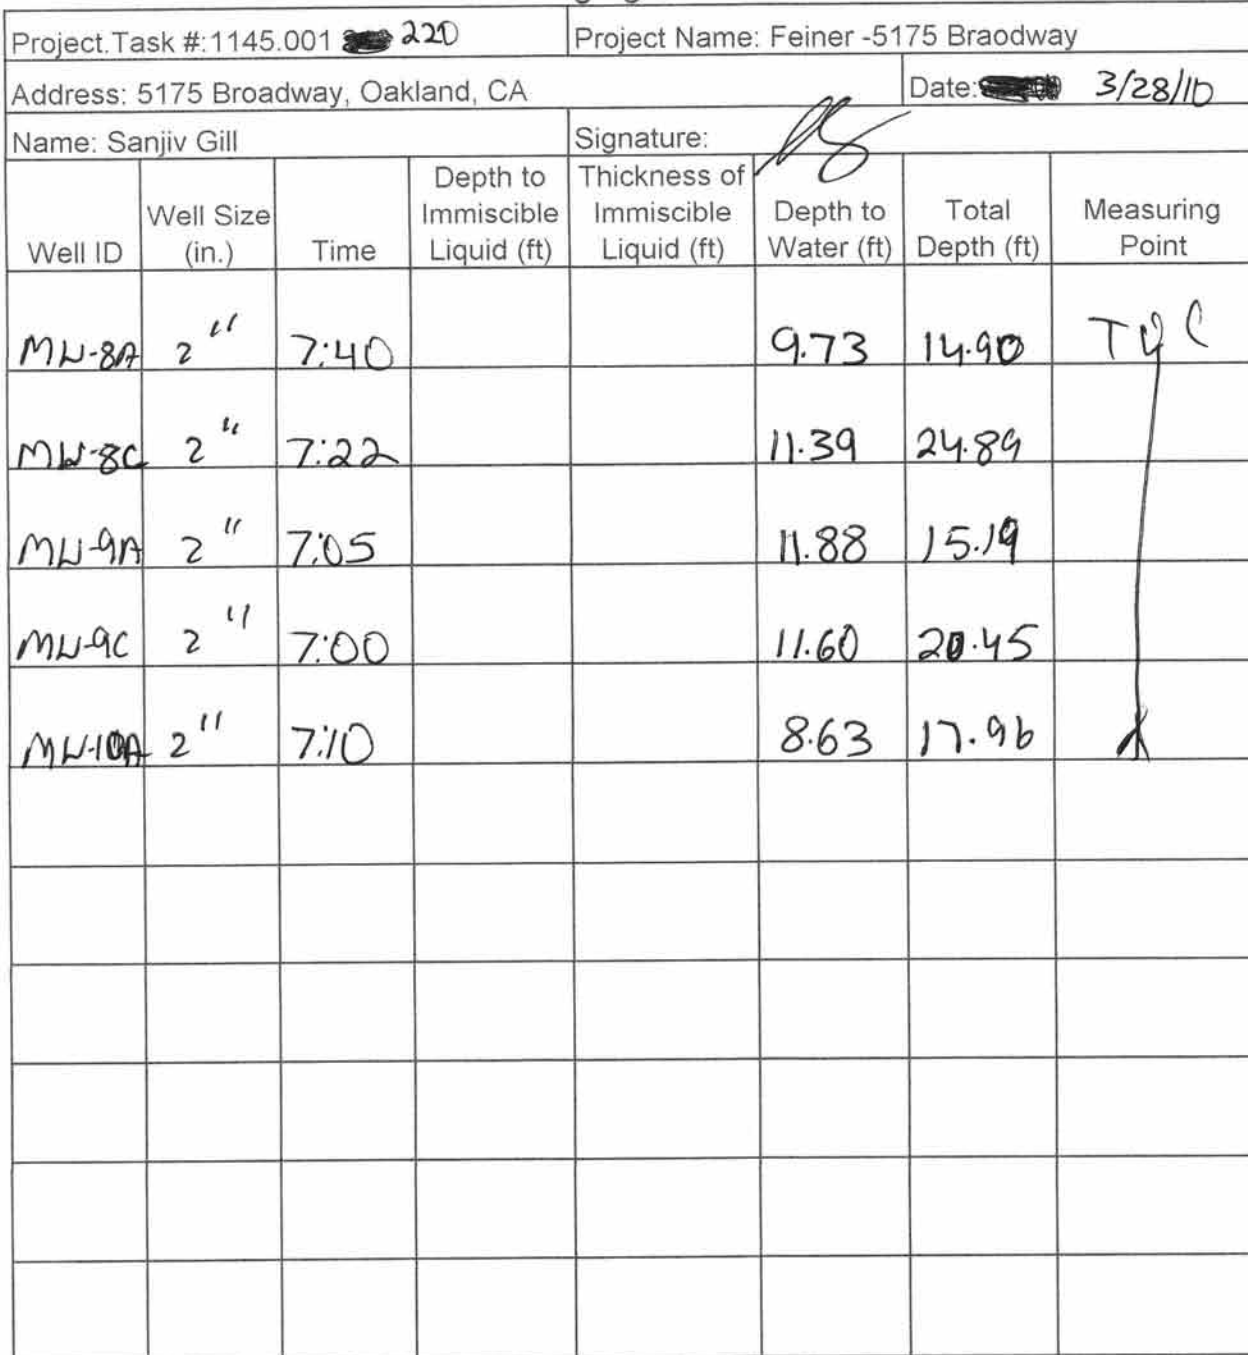 Project.Task #:1145.001 220 Project Name: Feiner -5175 Braodway
Address: 5175 Broadway, Oakland, CA Date: 3/28/10
Name: Sanjiv Gill Signature:
Well ID Well Size (in.) Time Depth to Immiscible Liquid (ft) Thickness of Immiscible Liquid (ft) Depth to Water (ft) Total Depth (ft) Measuring Point
MW-8A 2" 7:40 9.73 14.90 TOC
MW-8C 2" 7:22 11.39 24.89
MW-9A 2" 7:05 11.88 15.19
MW-9C 2" 7:00 11.60 20.45
MW-10A 2" 7:10 8.63 17.96